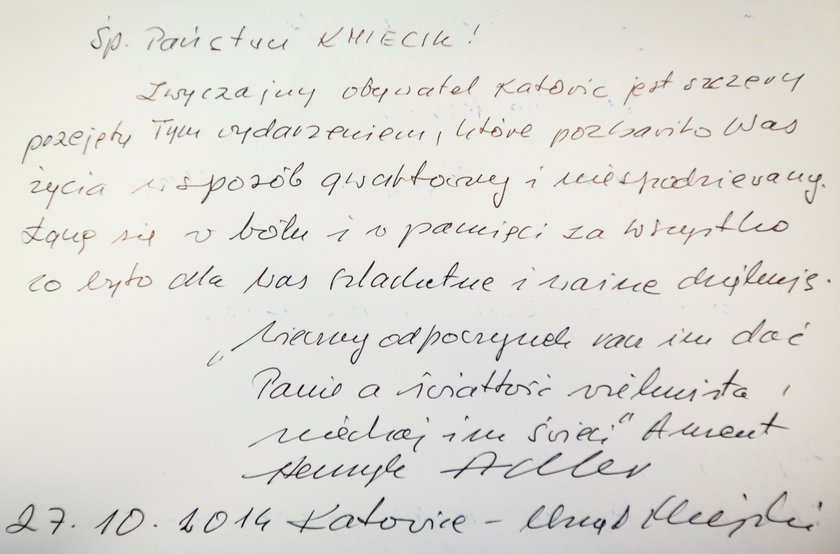 Śp. Państwu KMIECIK!
Zwyczajny obywatel Katowic jest szczery
przejęty Tym wydarzeniem, które pozbawiło Was
życia w sposób gwałtowny i niespodziewany.
Łączę się w bólu i w pamięci za wszystko
co było dla Was szlachetne i ważne dziękuję.
„Wieczny odpoczynek racz im dać
Panie a światłość wiekuista,
niechaj im świeci" Ament
Henryk Adler
27.10.2014 Katowice - Urząd Miejski